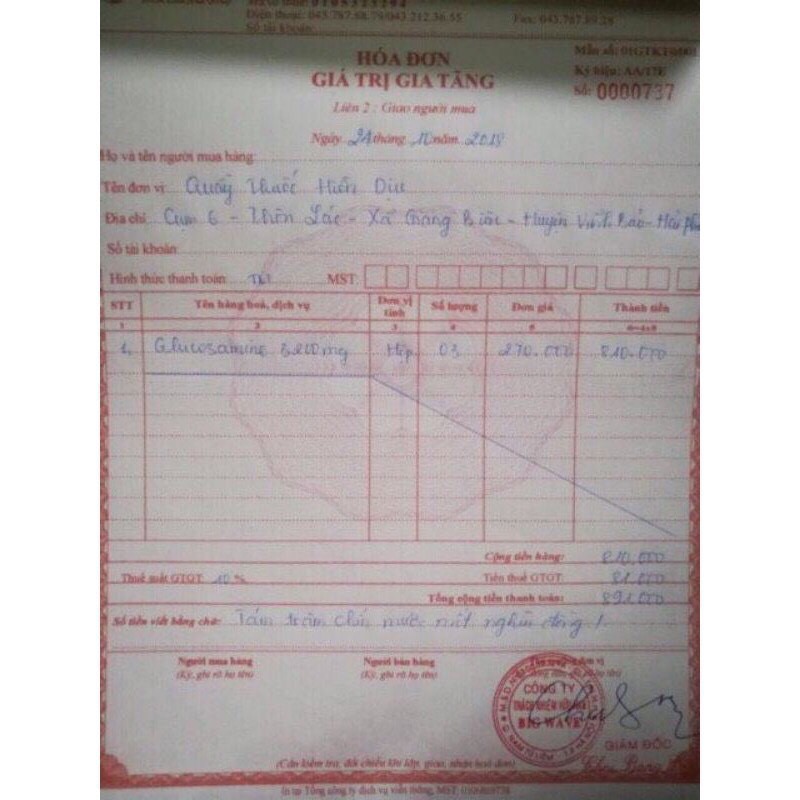 Điện thoại: 043.787.68.79/043.212.36.55 Fax: 043.787.69.28
Số tài khoản:
HÓA ĐƠN
GIÁ TRỊ GIA TĂNG
Liên 2: Giao người mua
Mẫu số: 01GTKT3/001
Ký hiệu: AA/17E
Số: 0000737
Ngày 24 tháng 10 năm 2018
Họ và tên người mua hàng:
Tên đơn vị: Quầy thuốc Hiền Dịu
Địa chỉ: Cụm 6 - Thôn - Xã Giang Biên - Huyện Vĩnh Bảo - Hải
Số tài khoản:
Hình thức thanh toán: TM MST:
STT Tên hàng hoá, dịch vụ Đơn vị tính Số lượng Đơn giá Thành tiền
1 2 3 4 5 6=4x5
1. Glucosamine 3200mg Hộp 03 270.000 810.000
Cộng tiền hàng: 810.000
Thuế suất GTGT: 10 % Tiền thuế GTGT: 81.000
Tổng cộng tiền thanh toán: 891.000
Số tiền viết bằng chữ: Tám trăm chín mươi mốt nghìn đồng /.
Người mua hàng Người bán hàng Thủ trưởng đơn vị
(Ký, ghi rõ họ tên) (Ký, ghi rõ họ tên)
CÔNG TY
TRÁCH NHIỆM HỮU HẠN
BIG WAVE
GIÁM ĐỐC
(Cần kiểm tra, đối chiếu khi lập, giao, nhận hoá đơn)
In tại Tổng công ty dịch vụ viễn thông, MST: